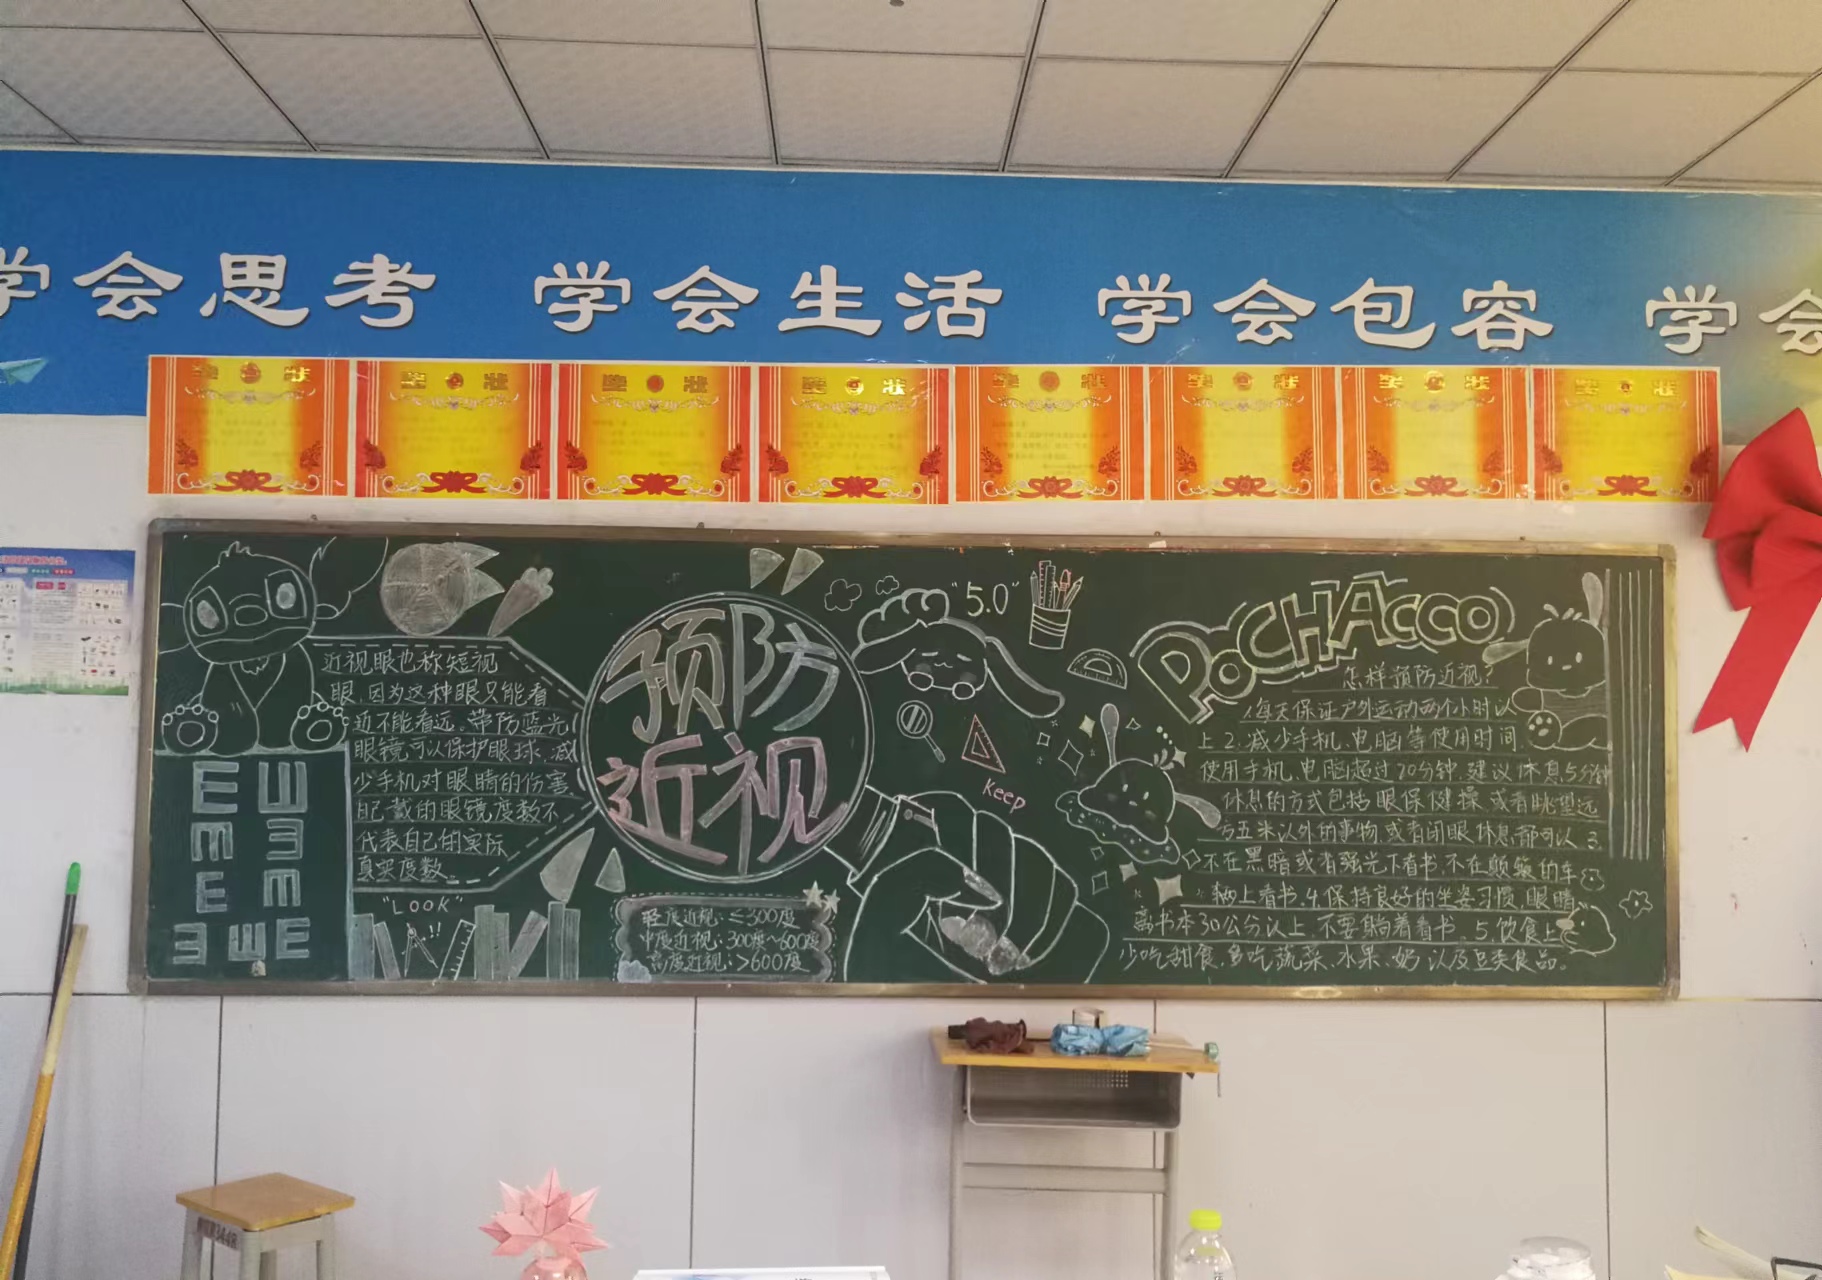 学会思考 学会生活 学会包容 学会
奖状 奖状 奖状 奖状 奖状 奖状 奖状 奖状
近视眼也称短视
眼,因为这种眼只能看
近不能看远。带防蓝光
眼镜,可以保护眼球,减
少手机对眼睛的伤害
自己戴的眼镜度数不
代表自己的实际
真实度数。
E Ш
m 3
E m
3 Ш E
"LOOK"!!
预防
近视
轻度近视:≤300度
中度近视:300度~600度
高度近视:>600度
"5.0"
Keep
POCHACCO
怎样预防近视?
1.每天保证户外运动两个小时以
上 2.减少手机、电脑等使用时间
使用手机、电脑超过20分钟,建议休息5分钟
休息的方式包括眼保健操,或者眺望远
方五米以外的事物,或者闭眼休息都可以 3.
不在黑暗或有强光下看书,不在颠簸的车
辆上看书,4.保持良好的坐姿习惯,眼睛
离书本30公分以上,不要躺着看书。5.饮食上
少吃甜食,多吃蔬菜、水果、奶以及豆类食品。